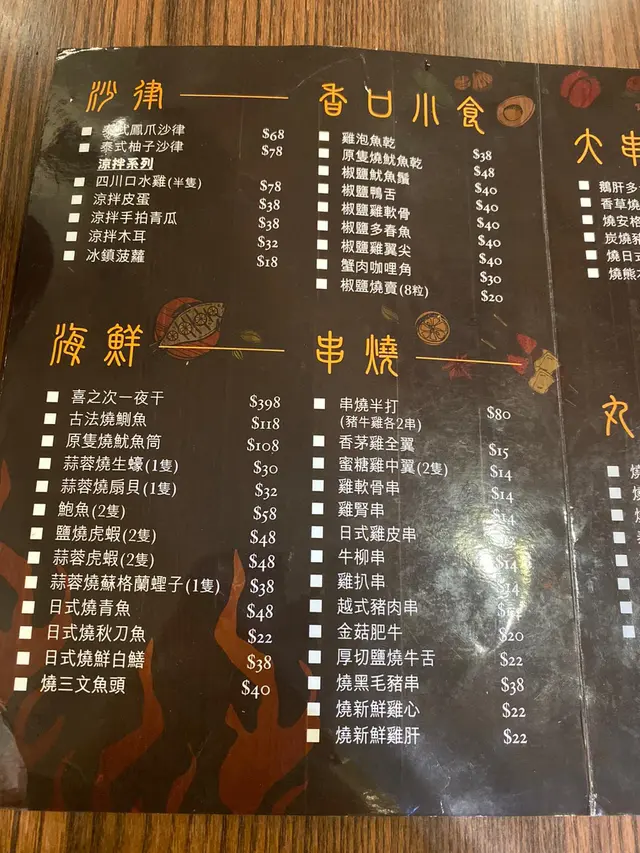 沙律
泰式鳳爪沙律 $68
泰式柚子沙律 $78
涼拌系列
四川口水雞(半隻) $78
涼拌皮蛋 $38
涼拌手拍青瓜 $38
涼拌木耳 $32
冰鎮菠蘿 $18
香口小食
雞泡魚乾 $38
原隻燒魷魚乾 $48
椒鹽魷魚鬚 $40
椒鹽鴨舌 $40
椒鹽雞軟骨 $40
椒鹽多春魚 $40
椒鹽雞翼尖 $40
蟹肉咖哩角 $30
椒鹽燒賣(8粒) $20
海鮮
喜之次一夜干 $398
古法燒鰂魚 $118
原隻燒魷魚筒 $108
蒜蓉燒生蠔(1隻) $30
蒜蓉燒扇貝(1隻) $32
鮑魚(2隻) $58
鹽燒虎蝦(2隻) $48
蒜蓉虎蝦(2隻) $48
蒜蓉燒蘇格蘭蟶子(1隻) $38
日式燒青魚 $48
日式燒秋刀魚 $22
日式燒鮮白鱔 $38
燒三文魚頭 $40
串燒
串燒半打 $80
(豬牛雞各2串)
香茅雞全翼 $15
蜜糖雞中翼(2隻) $14
雞軟骨串 $14
雞腎串 $14
日式雞皮串
牛柳串 $14
雞扒串 $14
越式豬肉串
金菇肥牛 $20
厚切鹽燒牛舌 $22
燒黑毛豬串 $38
燒新鮮雞心 $22
燒新鮮雞肝 $22
大串
鵝肝多
香草燒
燒安格
炭燒豬
燒日式
燒熊本
丸